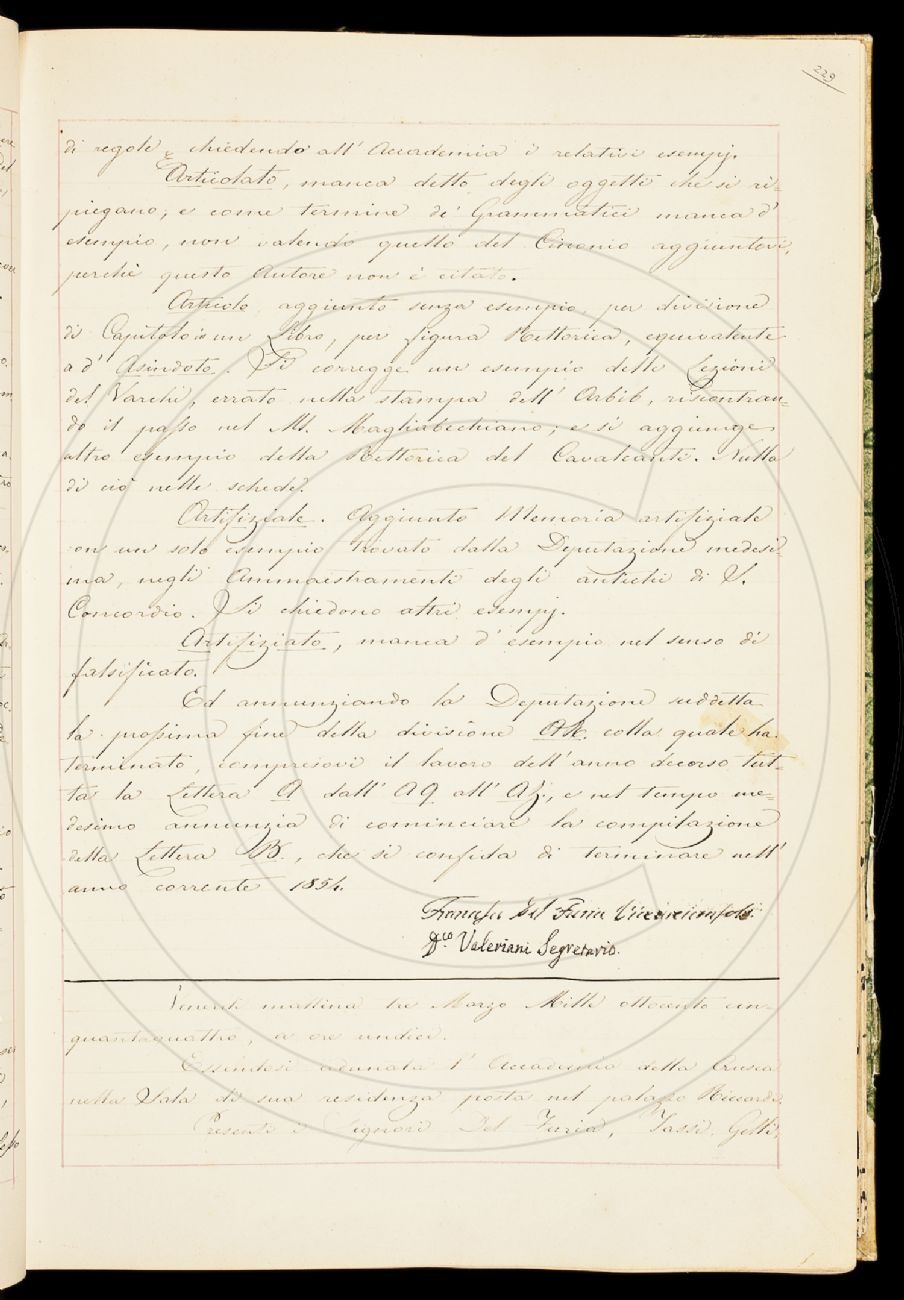 229
di regole, e chiedendo all' Accademia i relativi esempj.
Articolato, manca detto degli oggetti che si ri-
piegano; e come termine di Grammatici manca d'
esempio, non valendo quello del Cinonio aggiuntovi,
perchè questo Autore non è citato.
Articolo aggiunto senza esempio, per divisione
di Capitolo in un Libro, per figura Rettorica, equivalente
ad Asindoto. Si corregge un esempio delle Lezioni
del Varchi, errato nella stampa dell' Arbib, riscontran-
do il passo nel Ms. Magliabechiano; e si aggiunge
altro esempio della Rettorica del Cavalcanti. Nulla
di ciò nelle schede.
Artifiziale. Aggiunto Memoria artifiziale
con un solo esempio trovato dalla Deputazione medesi-
ma, negli Ammaestramenti degli antichi di S.
Concordio. Si chiedono altri esempj.
Artifiziato, manca d' esempio nel senso di
falsificato.
Ed annunziando la Deputazione suddetta
la prossima fine della divisione AR. colla quale ha
terminato, compresovi il lavoro dell' anno decorso tut-
ta la Lettera A dall' AQ all' AZ., e nel tempo me-
desimo annunzia di cominciare la compilazione
della Lettera B., che si confida di terminare nell'
anno corrente 1854.
Francesco Del Furia Vicearciconsolo
Dco Valeriani Segretario.
Venerdì mattina tre Marzo Mille ottocento cin-
quantaquattro, a ore undici.
Essendosi adunata l' Accademia della Crusca
nella Sala di sua residenza posta nel palazzo Riccardi,
Presenti i Signori Del Furia, Tassi, Gelli,